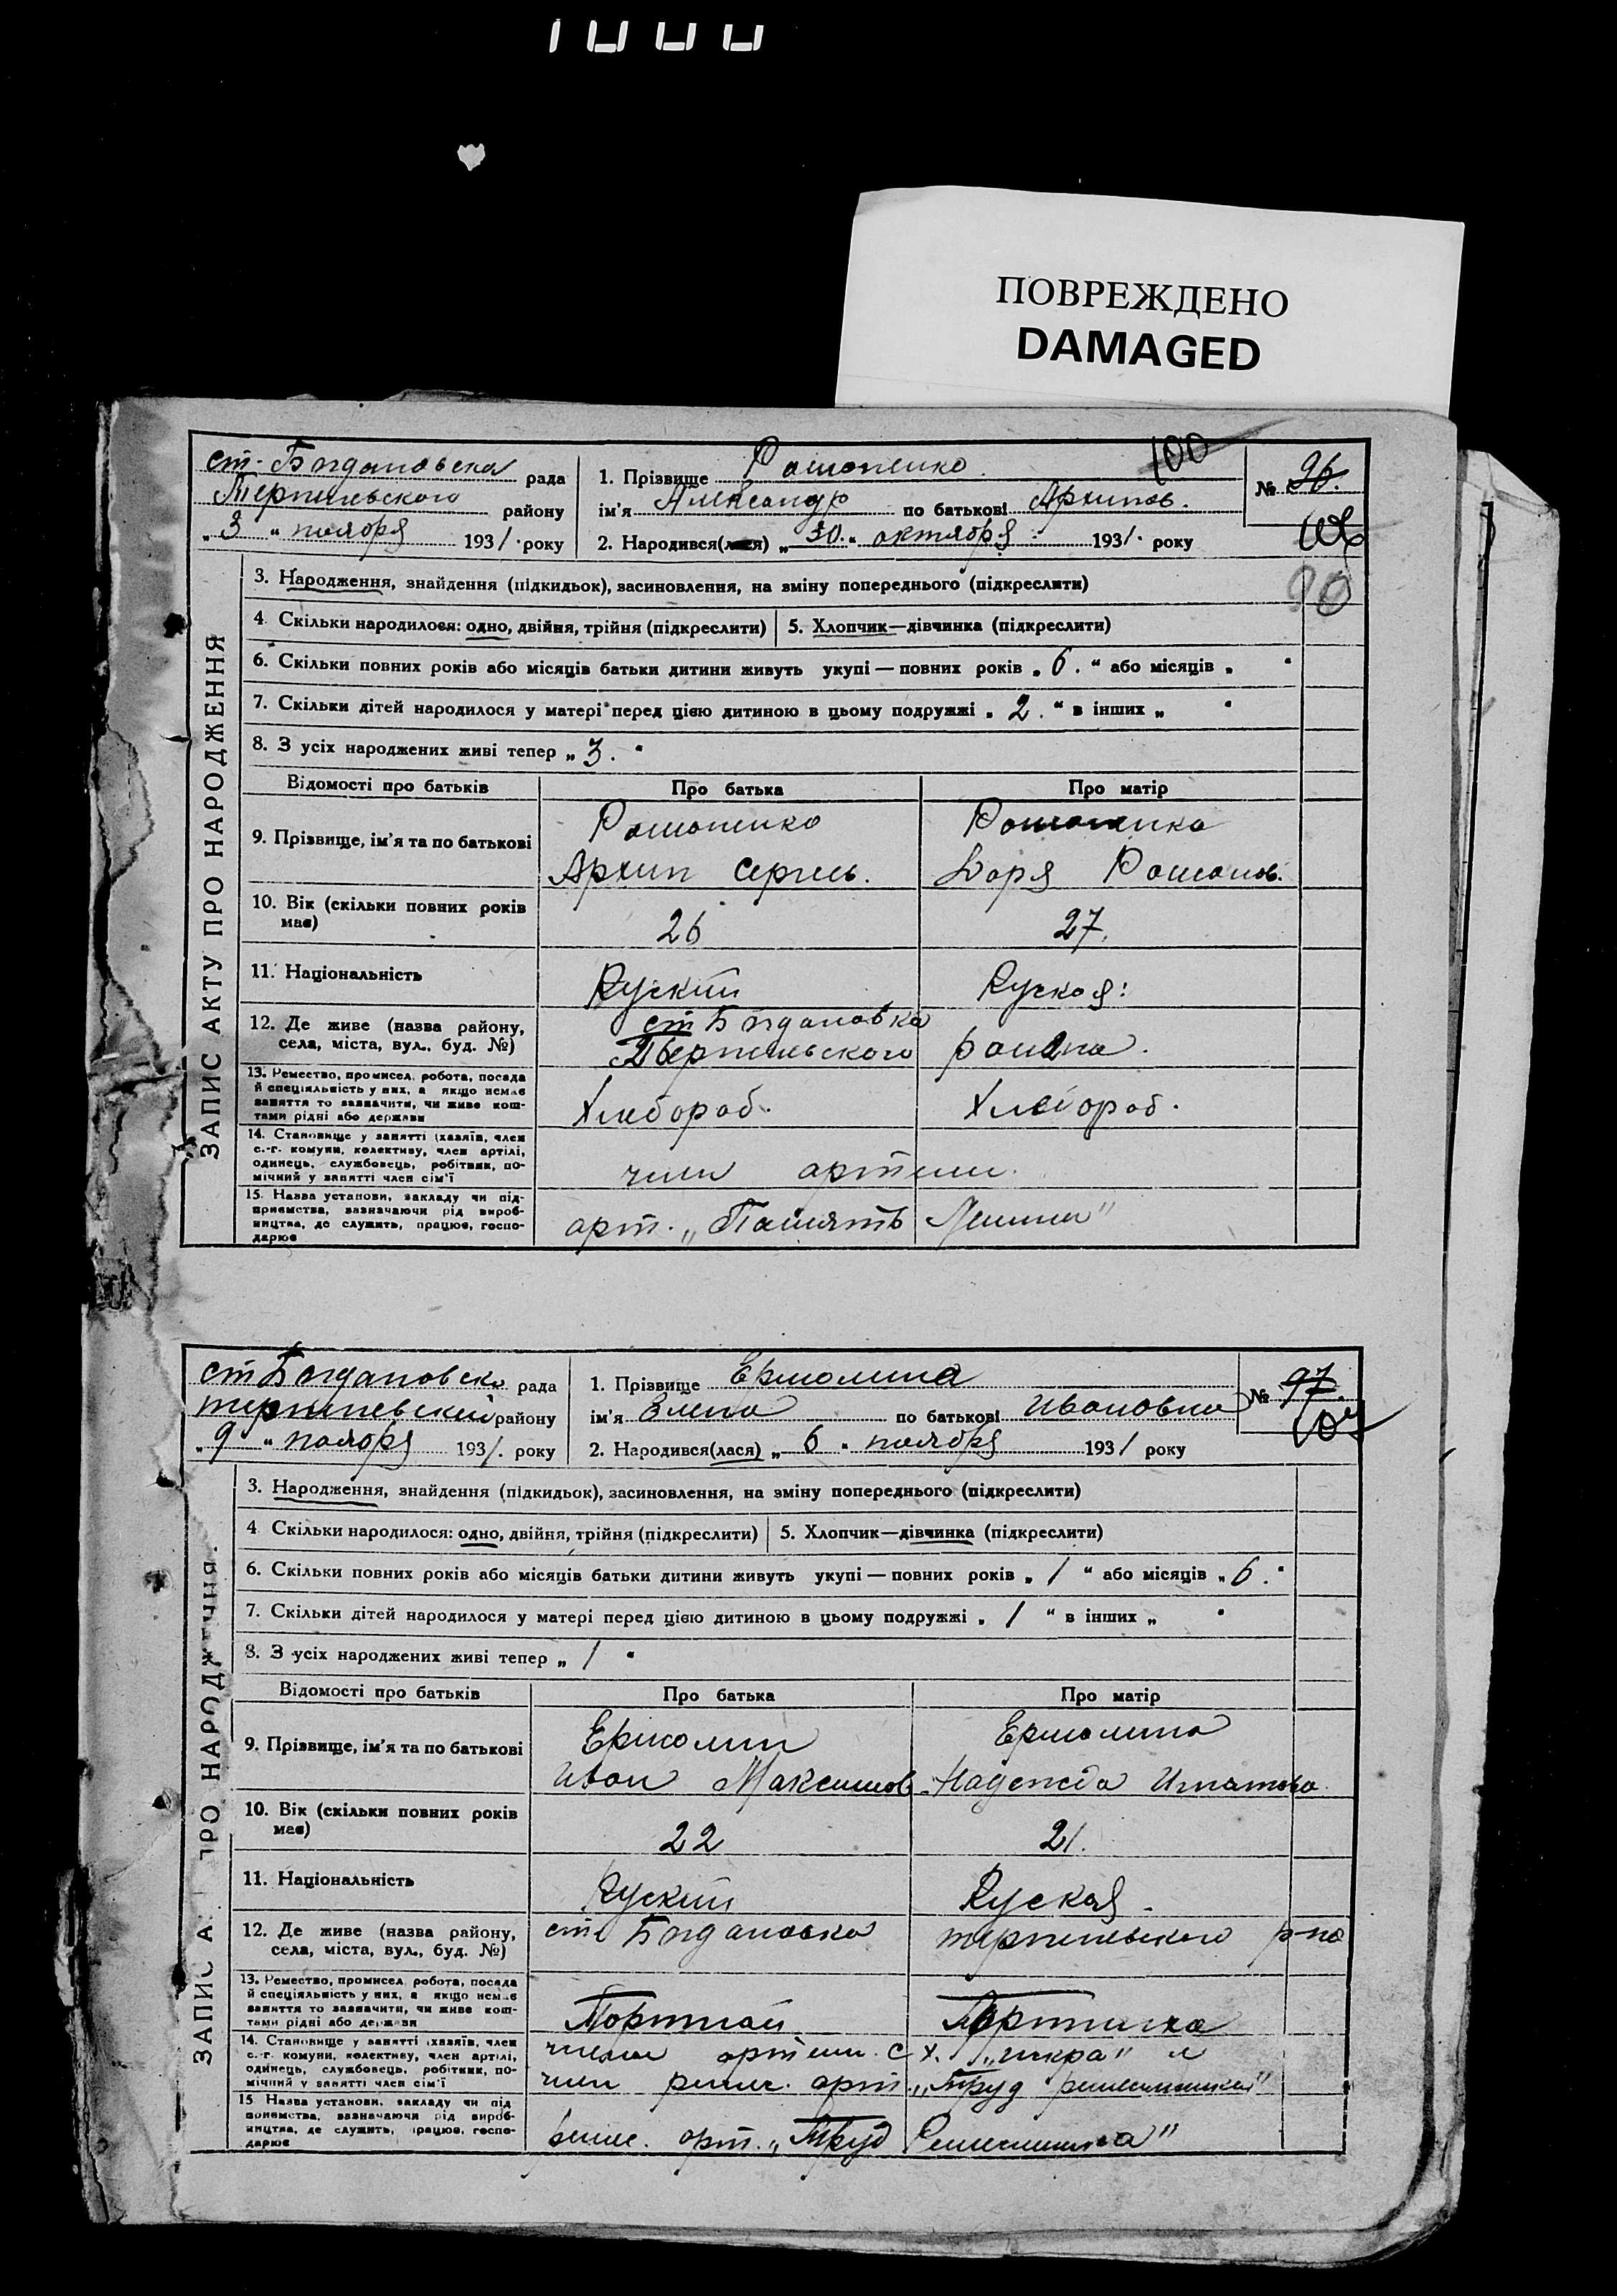 ПОВРЕЖДЕНО
DAMAGED
ст. Богдановска рада
Терпеньевского району
„3“ ноября 1931. року
1. Прізвище Романенко
100
ім'я Александр по батькові Архипов.
2. Народився(лася) „30.“ октября 1931. року
№ 96.
90
ЗАПИС АКТУ ПРО НАРОДЖЕННЯ
3. Народження, знайдення (підкидьок), засиновлення, на зміну попереднього (підкреслити)
4. Скільки народилося: одно, двійня, трійня (підкреслити)
5. Хлопчик—дівчинка (підкреслити)
6. Скільки повних років або місяців батьки дитини живуть укупі — повних років „6.“ або місяців „ “
7. Скільки дітей народилося у матері перед цією дитиною в цьому подружжі „2.“ в інших „ “
8. З усіх народжених живі тепер „3.“
Відомості про батьків
Про батька
Про матір
9. Прізвище, ім'я та по батькові
Романенко
Архип Сергеев.
Романенко
Даря Романов.
10. Вік (скільки повних років має)
26
27.
11. Національність
Руский
Руская:
12. Де живе (назва району, села, міста, вул., буд. №)
ст Богдановка
Терпеньевского района.
13. Ремество, промисел, робота, посада й спеціяльність у них, а якщо немає заняття то зазначити, чи живе коштами рідні або держави
Хлебороб.
Хлебороб.
14. Становище у занятті (хазяїн, член с.-г. комуни, колективу, член артілі, одинець, службовець, робітник, помічний у занятті член сім'ї
член артели.
15. Назва установи, закладу чи підприємства, зазначаючи рід виробництва, де служить, працює, господарює
арт. „Память Ленина"
ст Богдановско рада
терпеневский району
„9“ ноября 1931. року
1. Прізвище Ермолина
ім'я Елена по батькові Ивановна
2. Народився(лася) „6“ ноября 1931 року
№ 97.
ЗАПИС А ПРО НАРОДЖЕННЯ
3. Народження, знайдення (підкидьок), засиновлення, на зміну попереднього (підкреслити)
4 Скільки народилося: одно, двійня, трійня (підкреслити)
5. Хлопчик—дівчинка (підкреслити)
6. Скільки повних років або місяців батьки дитини живуть укупі — повних років „1“ або місяців „6.“
7. Скільки дітей народилося у матері перед цією дитиною в цьому подружжі „1“ в інших „ “
8. З усіх народжених живі тепер „1“
Відомості про батьків
Про батька
Про матір
9. Прізвище, ім'я та по батькові
Ермолин
Иван Максимов
Ермолина
Надежда Игнатова
10. Вік (скільки повних років має)
22
21.
11. Національність
Руский
Руская.
12. Де живе (назва району, села, міста, вул., буд. №)
ст Богдановка терпеньевского р-на
13. Ремество, промисел, робота, посада й спеціяльність у них, а якщо немає заняття то зазначити, чи живе коштами рідні або держави
Портной
Портниха
14. Становище у занятті (хазяїн, член с.-г. комуни, колективу, член артілі, одинець, службовець, робітник, помічний у занятті член сім'ї
члены артели. с х. „искра" и
член ремес. арт. „Труд ремесленика"
15 Назва установи, закладу чи підприємства, зазначаючи рід виробництва, де служить, працює, господарює
ремес. арт. „Труд Ремесленика"